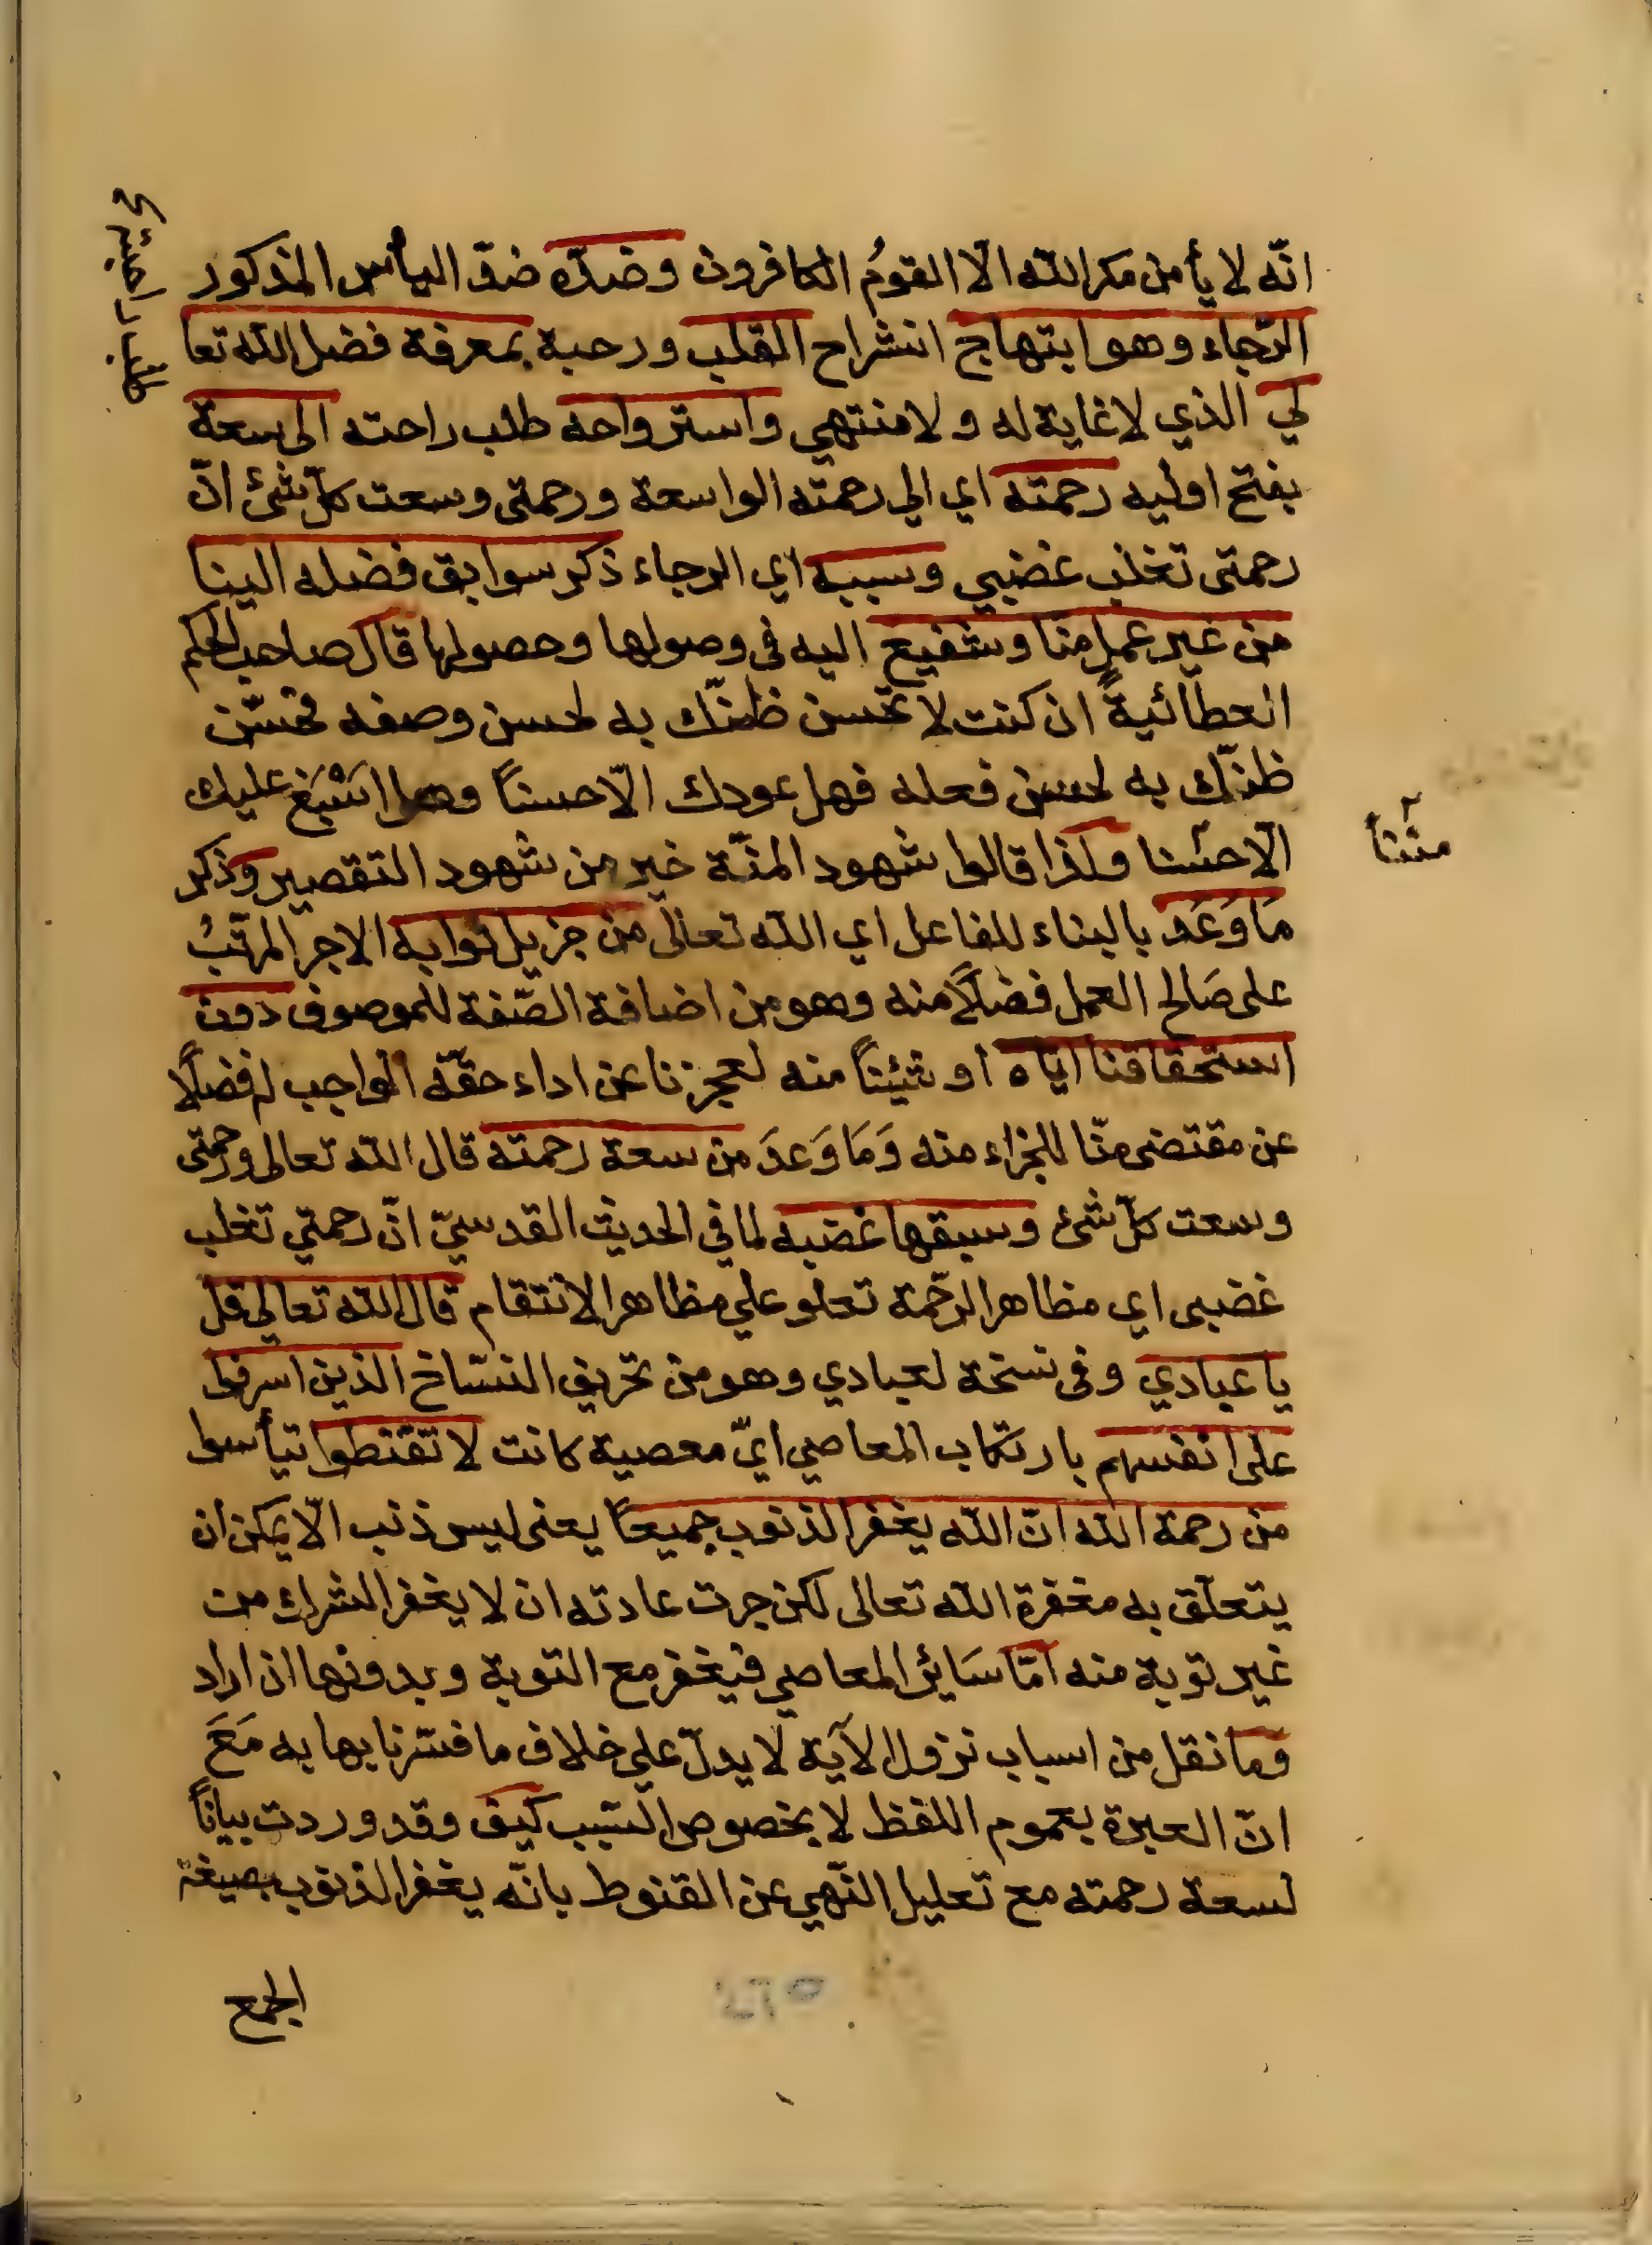 انّه لا يأمن مكر الله الّا القومُ الكافرون وضدّه ضدّ اليأس المذكور
الرّجاء وهو ابتهاج انشراح القلب ورحبة بمعرفة فضل الله تعا
لي الذي لا غاية له ولا منتهي واسترواحه طلب راحته الى سعة
بفتح اوليه رحمته اي الي رحمته الواسعة ورحمتى وسعت كلّ شئ انّ
رحمتى تغلب غضبي وسببه اي الرجاء ذكر سوابق فضله الينا
من غير عملٍ منا وشفيع اليه في وصولها وحصولها قال صاحب الحكم
العطائية ان كنت لا تحسن ظنّك به لحسن وصفه فحسّن
ظنّك به لحسن فعله فهل عودك الّا حسناً وهل اسْبَغ عليك
الّا حسنا ولذا قالوا شهود المنّة خير من شهود التقصير وذكر
مَا وَعَد بالبناء للفاعل اي الله تعالى من جزيل ثوابه الاجر المرتّبُ
على صَالح العمل فضلاً منه وهو من اضافة الصّفة للموصوف دون
استحقاقنا ايّاه او شيئاً منه لعجزنا عن اداء حقّه الواجب له فضلًا
عن مقتضى منّا للجزاء منه وَمَا وَعَدَ من سعة رحمته قال الله تعالى ورحمتى
وسعت كلّ شئ وسبقها غضبه لما في الحديث القدسيّ انّ رحمتي تغلب
غضبى اي مظاهر الرّحمة تعلو علي مظاهر الانتقام قال الله تعالي قل
يا عبادي وفى نسخة لعبادي وهو من تحريف النسّاخ الذين اسرفوا
على انفسهم بارتكاب المعاصي ايّ معصية كانت لا تقنطوا تيأسوا
من رحمة الله انّ الله يغفر الذنوب جميعاً يعنى ليس ذنب الّا يمكن ان
يتعلّق به مغفرة الله تعالى لكن جرت عادته ان لا يغفر الشرك من
غير توبة منه امّا سَائر المعاصي فيغفر مع التوبة وبدونها ان اراد
وما نقل من اسباب نزول الآية لا يدلّ علي خلاف ما فسّرنا بها به مَعَ
انّ العبرة بعموم اللفظ لا بخصوص السّبب كيف وقد وردت بياناً
لسعة رحمته مع تعليل النّهي عن القنوط بانّه يغفر الذنوب بصيغة
الجمع